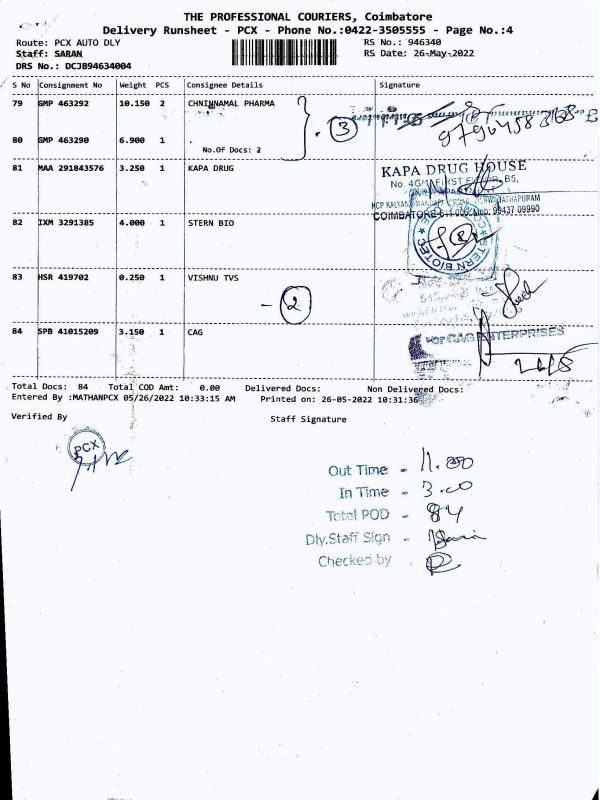 THE PROFESSIONAL COURIERS, Coimbatore
Delivery Runsheet - PCX - Phone No.:0422-3505555 - Page No.:4
Route: PCX AUTO DLY RS No.: 946340
Staff: SARAN RS Date: 26-May-2022
DRS No.: DCJB94634004
S No Consignment No Weight PCS Consignee Details Signature
79 GMP 463292 10.150 2 CHNINNAMAL PHARMA
3
80 GMP 463290 6.900 1 .
No.Of Docs: 2
81 MAA 291843576 3.250 1 KAPA DRUG
KAPA DRUG HOUSE
COIMBATORE 99437 09990
82 IXM 3291385 4.000 1 STERN BIO
STERN BIOTEC
83 HSR 419702 0.250 1 VISHNU TVS
- 2
84 SPB 41015209 3.150 1 CAG
For CAG ENTERPRISES
Total Docs: 84 Total COD Amt: 0.00 Delivered Docs: Non Delivered Docs:
Entered By :MATHANPCX 05/26/2022 10:33:15 AM Printed on: 26-05-2022 10:31:36
Verified By Staff Signature
PCX
Out Time - 11.00
In Time - 3.00
Total POD - 84
Dly.Staff Sign -
Checked by